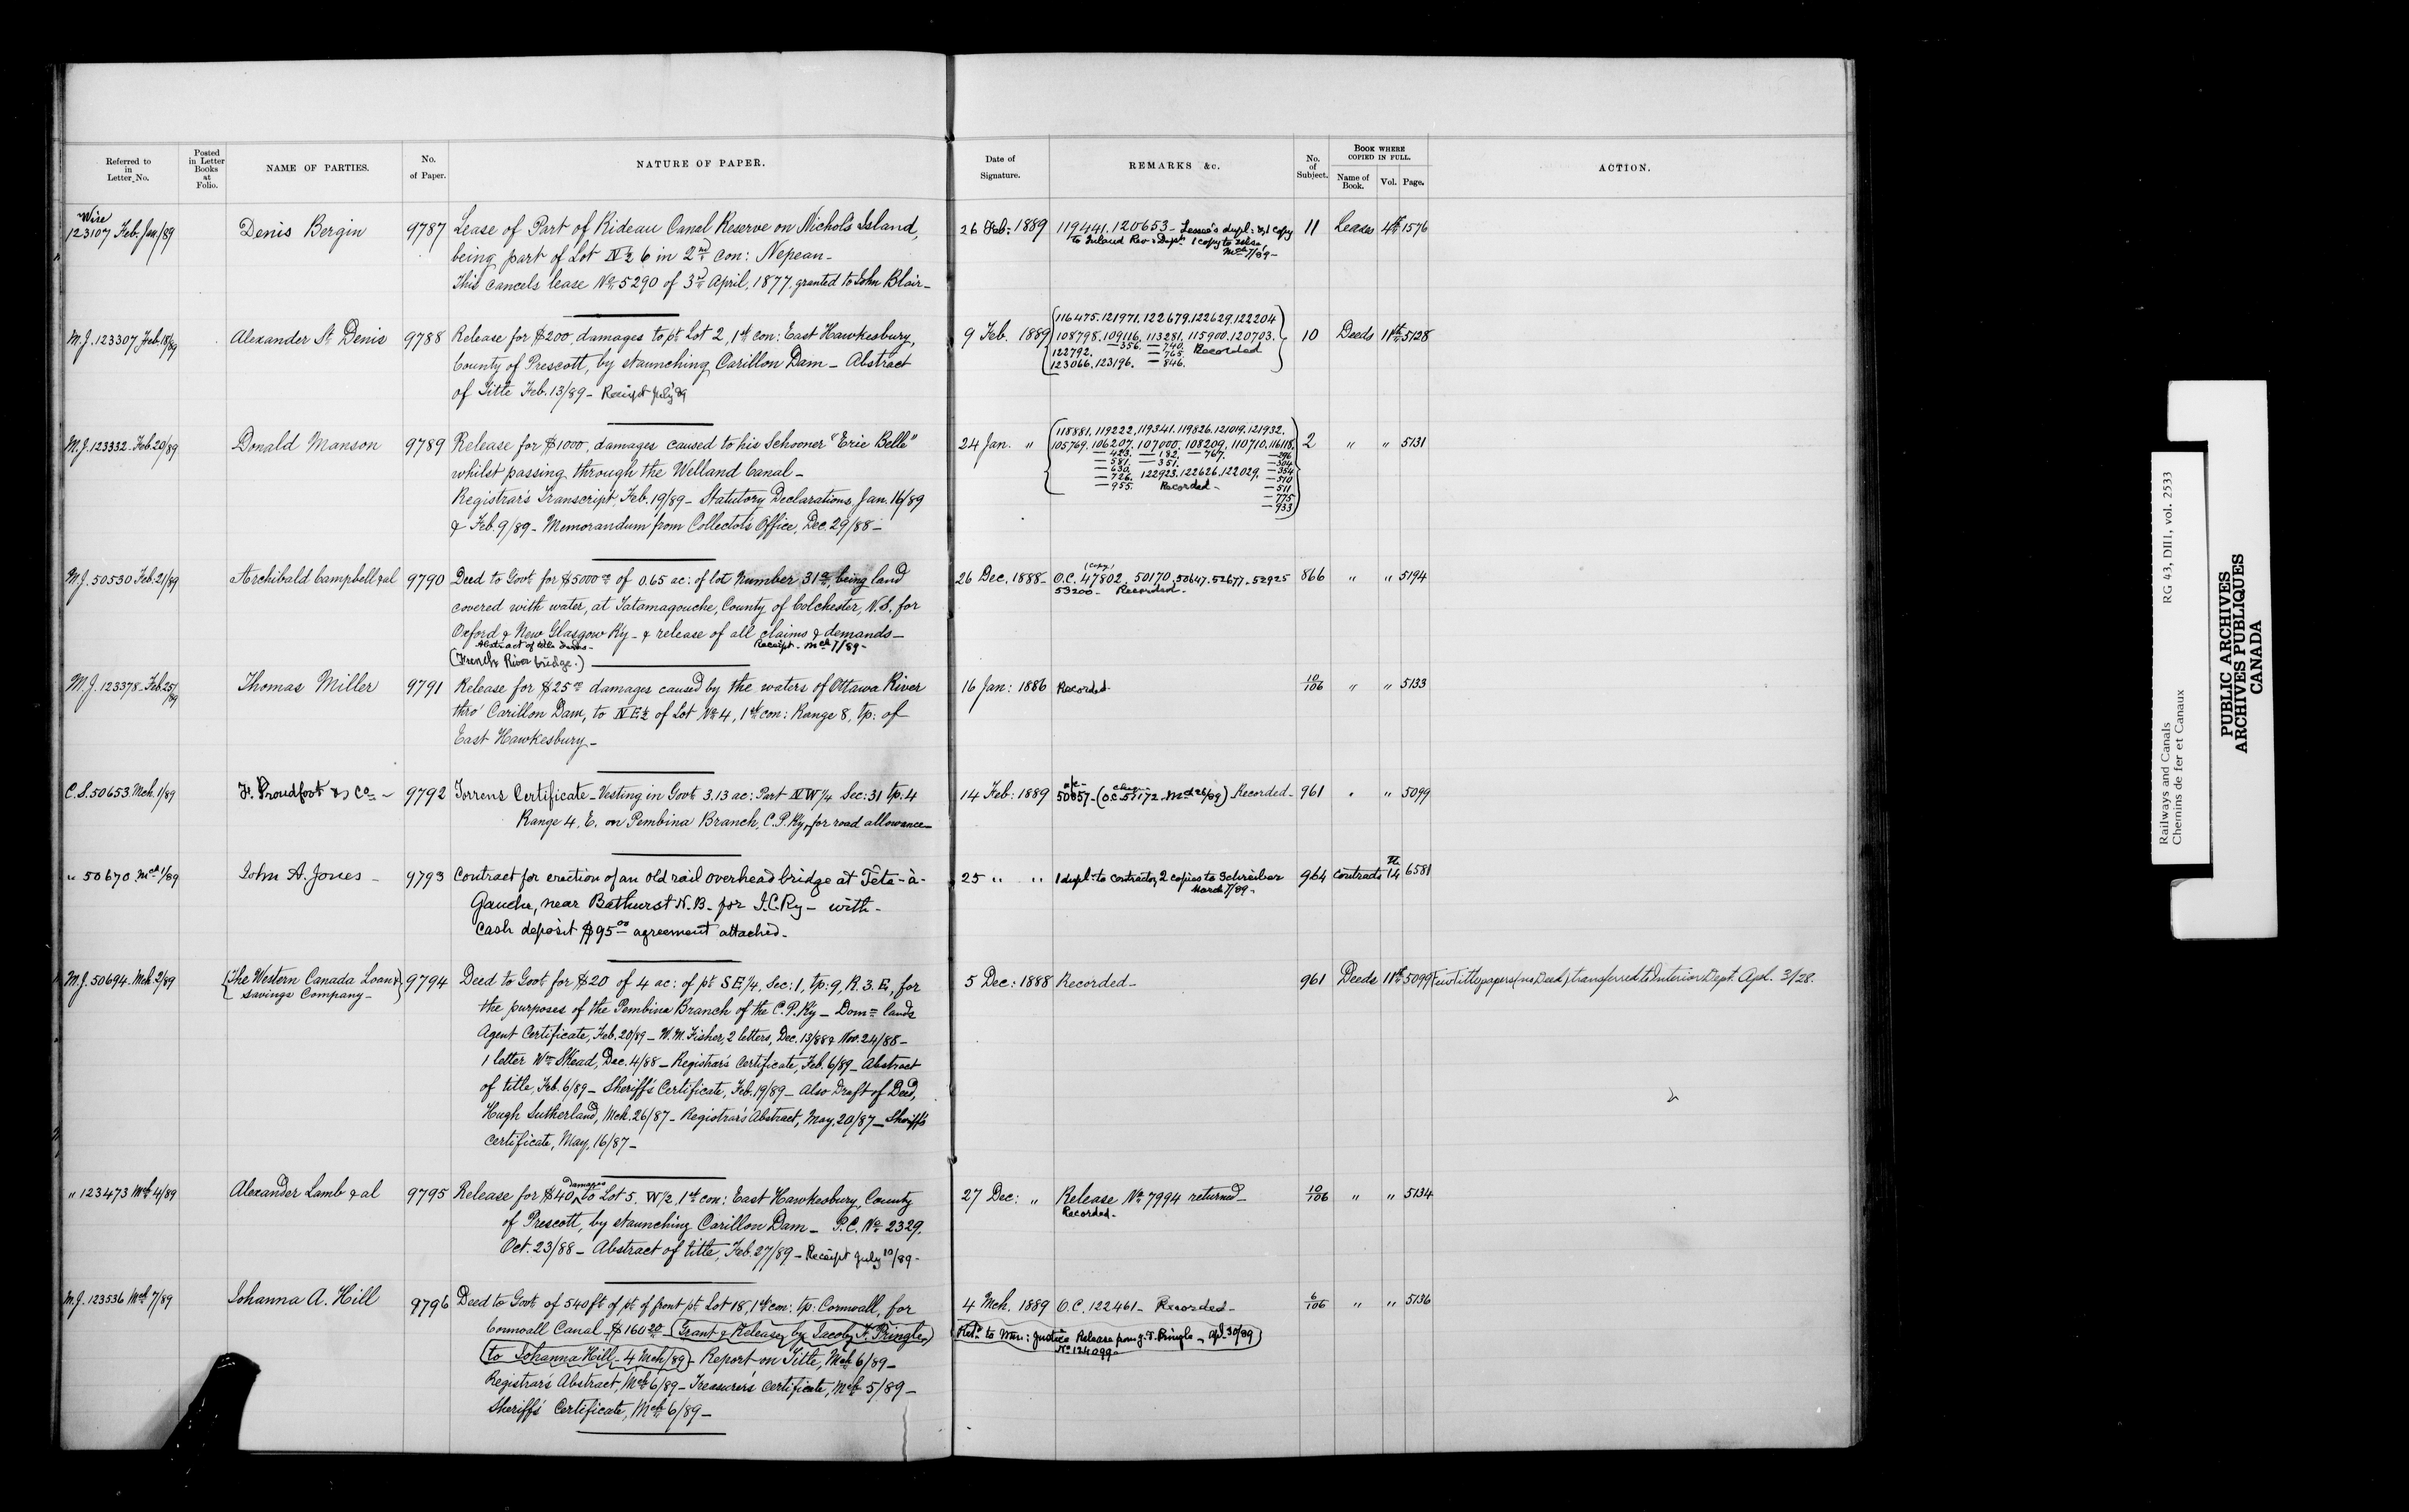 Referred to in Letter No.
Posted in Letter Books at Folio.
NAME OF PARTIES.
No. of Paper.
NATURE OF PAPER.
Date of Signature.
REMARKS &c.
No. of Subject.
BOOK WHERE COPIED IN FULL.
Name of Book.
Vol.
Page.
ACTION.
Wire
123107 Feb. Jan/89 Denis Bergin 9787 Lease of Part of Rideau Canal Reserve on Nichols Island, 26 Feb: 1889 119441. 120653 - Lessee's dupl: & 1 copy 11 Leases 4th 1576
to Inland Rev: Dept. 1 copy to
Mch 7/89 -
being part of Lot N½ 6 in 2nd Con: Nepean -
This cancels lease No. 5290 of 3rd April, 1877. granted to John Blair -
M.J. 123307 Feb. 18/89 Alexander St Denis 9788 Release for $200, damages to pt Lot 2, 1st con: East Hawkesbury, 9 Feb. 1889 10 Deeds 11th 5128
116475. 121971. 122679. 122629. 122204
108798. 109116. 113281. 115900. 120703.
- 356. - 740.
122792. - 765. Recorded
123066. 123196. - 846.
County of Prescott, by staunching Carillon Dam - Abstract
of Title Feb. 13/89 - Receipt July/89
M.J. 123332 - Feb. 20/89 Donald Manson 9789 Release for $1000, damages caused to his Schooner "Erie Belle" 24 Jan. " 2 " " 5131
118881. 119222. 119341. 119826. 121019. 121932.
105769. 106207. 107000. 108209. 110710. 116118.
- 423. - 182. - 767. - 296
- 581. - 351. - 304
- 630. - 354
- 726. 122923. 122626. 122029. - 510
- 955. Recorded - - 511
- 775
- 933
whilst passing through the Welland Canal -
Registrar's Transcript, Feb. 19/89 - Statutory Declarations, Jan. 16/89
& Feb. 9/89 - Memorandum from Collector's Office, Dec. 29/88 -
M.J. 50530 Feb. 21/89 Archibald Campbell & al 9790 Deed to Govt for $5000.00 of 0.65 ac: of lot Number 31a being land 26 Dec. 1888 - O.C. 47802. 50170. 50647. 52677. 52925 866 " " 5194
(Copy)
53200 - Recorded -
covered with water, at Tatamagouche, County of Colchester, N.S. for
Oxford & New Glasgow Ry - & release of all claims & demands -
Abstract of title Receipt - Mch 7/89 -
(French River bridge.)
M.J. 123378 - Feb. 25/89 Thomas Miller 9791 Release for $25.00 damages caused by the waters of Ottawa River 16 Jan: 1886 Recorded - 10/106 " " 5133
thro' Carillon Dam, to N E ½ of Lot No. 4, 1st con: Range 8, tp: of
East Hawkesbury -
C.S. 50653 Mch. 1/89 F. Proudfoot & Co - 9792 Torrens Certificate - Vesting in Govt 3.13 ac: Part N W ¼ Sec: 31 tp. 4 14 Feb: 1889 50857 - (O.C. 51172 - Mch 26/89) Recorded - 961 " " 5099
Range 4, E. on Pembina Branch, C.P. Ry, for road allowance -
" 50670 Mch 1/89 John A. Jones - 9793 Contract for erection of an old rail overhead bridge at Tête-à- 25 " " 1 dupl: to contractor, 2 copies to Schreiber 964 Contracts 14th 6581
March 7/89 -
Gauche, near Bathurst N.B. for I.C. Ry - with -
Cash deposit $95.00 agreement attached -
M.J. 50694 - Mch. 2/89 The Western Canada Loan & Savings Company - 9794 Deed to Govt for $20 of 4 ac: of pt S E ¼, Sec: 1, tp: 9, R. 3. E, for 5 Dec: 1888 Recorded - 961 Deeds 11th 5099 Few Title papers (no Deed) transferred to Interior Dept. Apl. 3/28.
the purposes of the Pembina Branch of the C.P. Ry - Dom: lands
Agent Certificate, Feb. 20/89 - W. M. Fisher, 2 letters, Dec. 13/88 & Nov. 24/88 -
1 letter Wm Skead, Dec. 4/88 - Registrar's Certificate, Feb. 6/89 - Abstract
of title, Feb. 6/89 - Sheriff's Certificate, Feb. 19/89 - Also Draft of Deed,
Hugh Sutherland, Mch. 26/87 - Registrar's Abstract, May, 20/87 - Sheriff's
Certificate, May, 16/87 -
" 123473 Mch 4/89 Alexander Lamb & al 9795 Release for $40, damages to Lot 5. W/2 1st con: East Hawkesbury, County 27 Dec: " Release No. 7994 returned - 10/106 " " 5134
Recorded -
of Prescott, by staunching Carillon Dam - P.C. No. 2329.
Oct. 23/88 - Abstract of title, Feb. 27/89 - Receipt July 10/89 -
M.J. 123536 Mch 7/89 Johanna A. Hill 9796 Deed to Govt of 540 ft of pt of front pt Lot 18, 1st con: tp: Cornwall, for 4 Mch. 1889 O.C. 122461 - Recorded - 6/106 " " 5136
Cornwall Canal - $160.20 - (Grant & Release, by Jacob F. Pringle,
Ret'd to Min: Justice Release from J. F. Pringle - Apl 30/89
No. 124099 -
to Johanna Hill - 4 Mch/89) - Report on Title, Mch 6/89 -
Registrar's Abstract, Mch 6/89 - Treasurer's Certificate, Mch 5/89 -
Sheriff's Certificate, Mch 6/89 -
Railways and Canals RG 43, DIII, vol. 2533
Chemins de fer et Canaux
PUBLIC ARCHIVES
ARCHIVES PUBLIQUES
CANADA